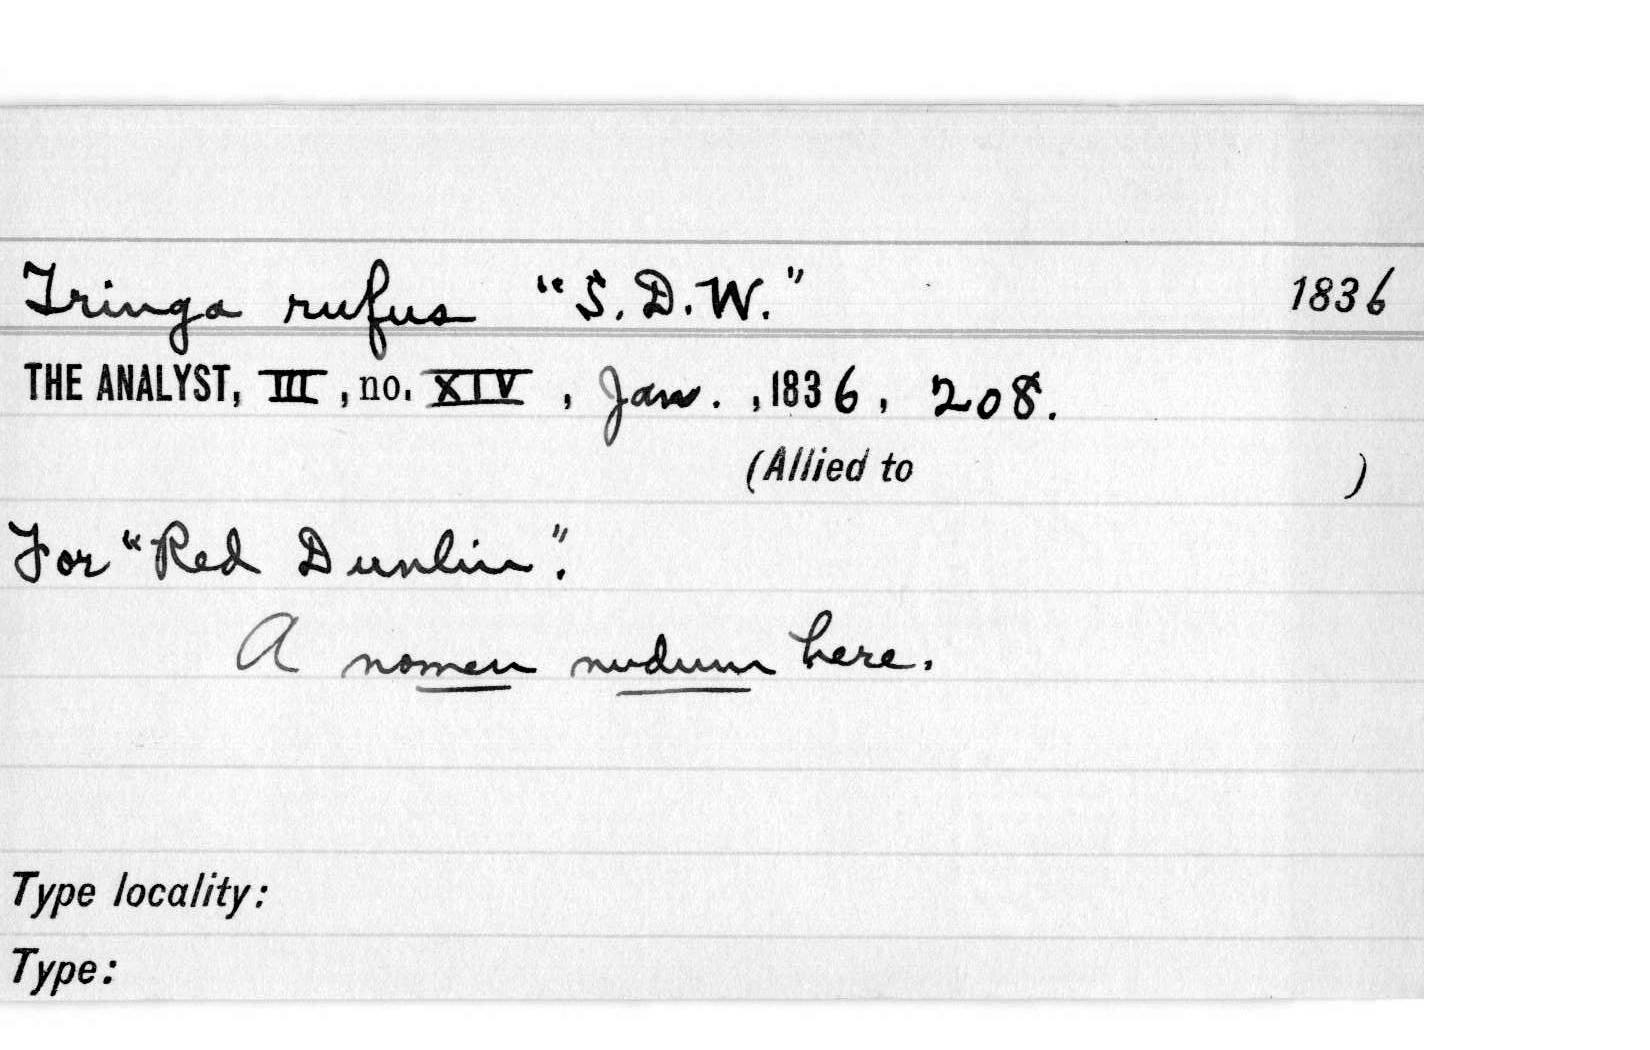 Tringa rufus "S. D. W." 1836
THE ANALYST, III, no. XIV, Jan., 1836, 208.
(Allied to )
For "Red Dunlin".
A nomen nudum here.
Type locality:
Type: